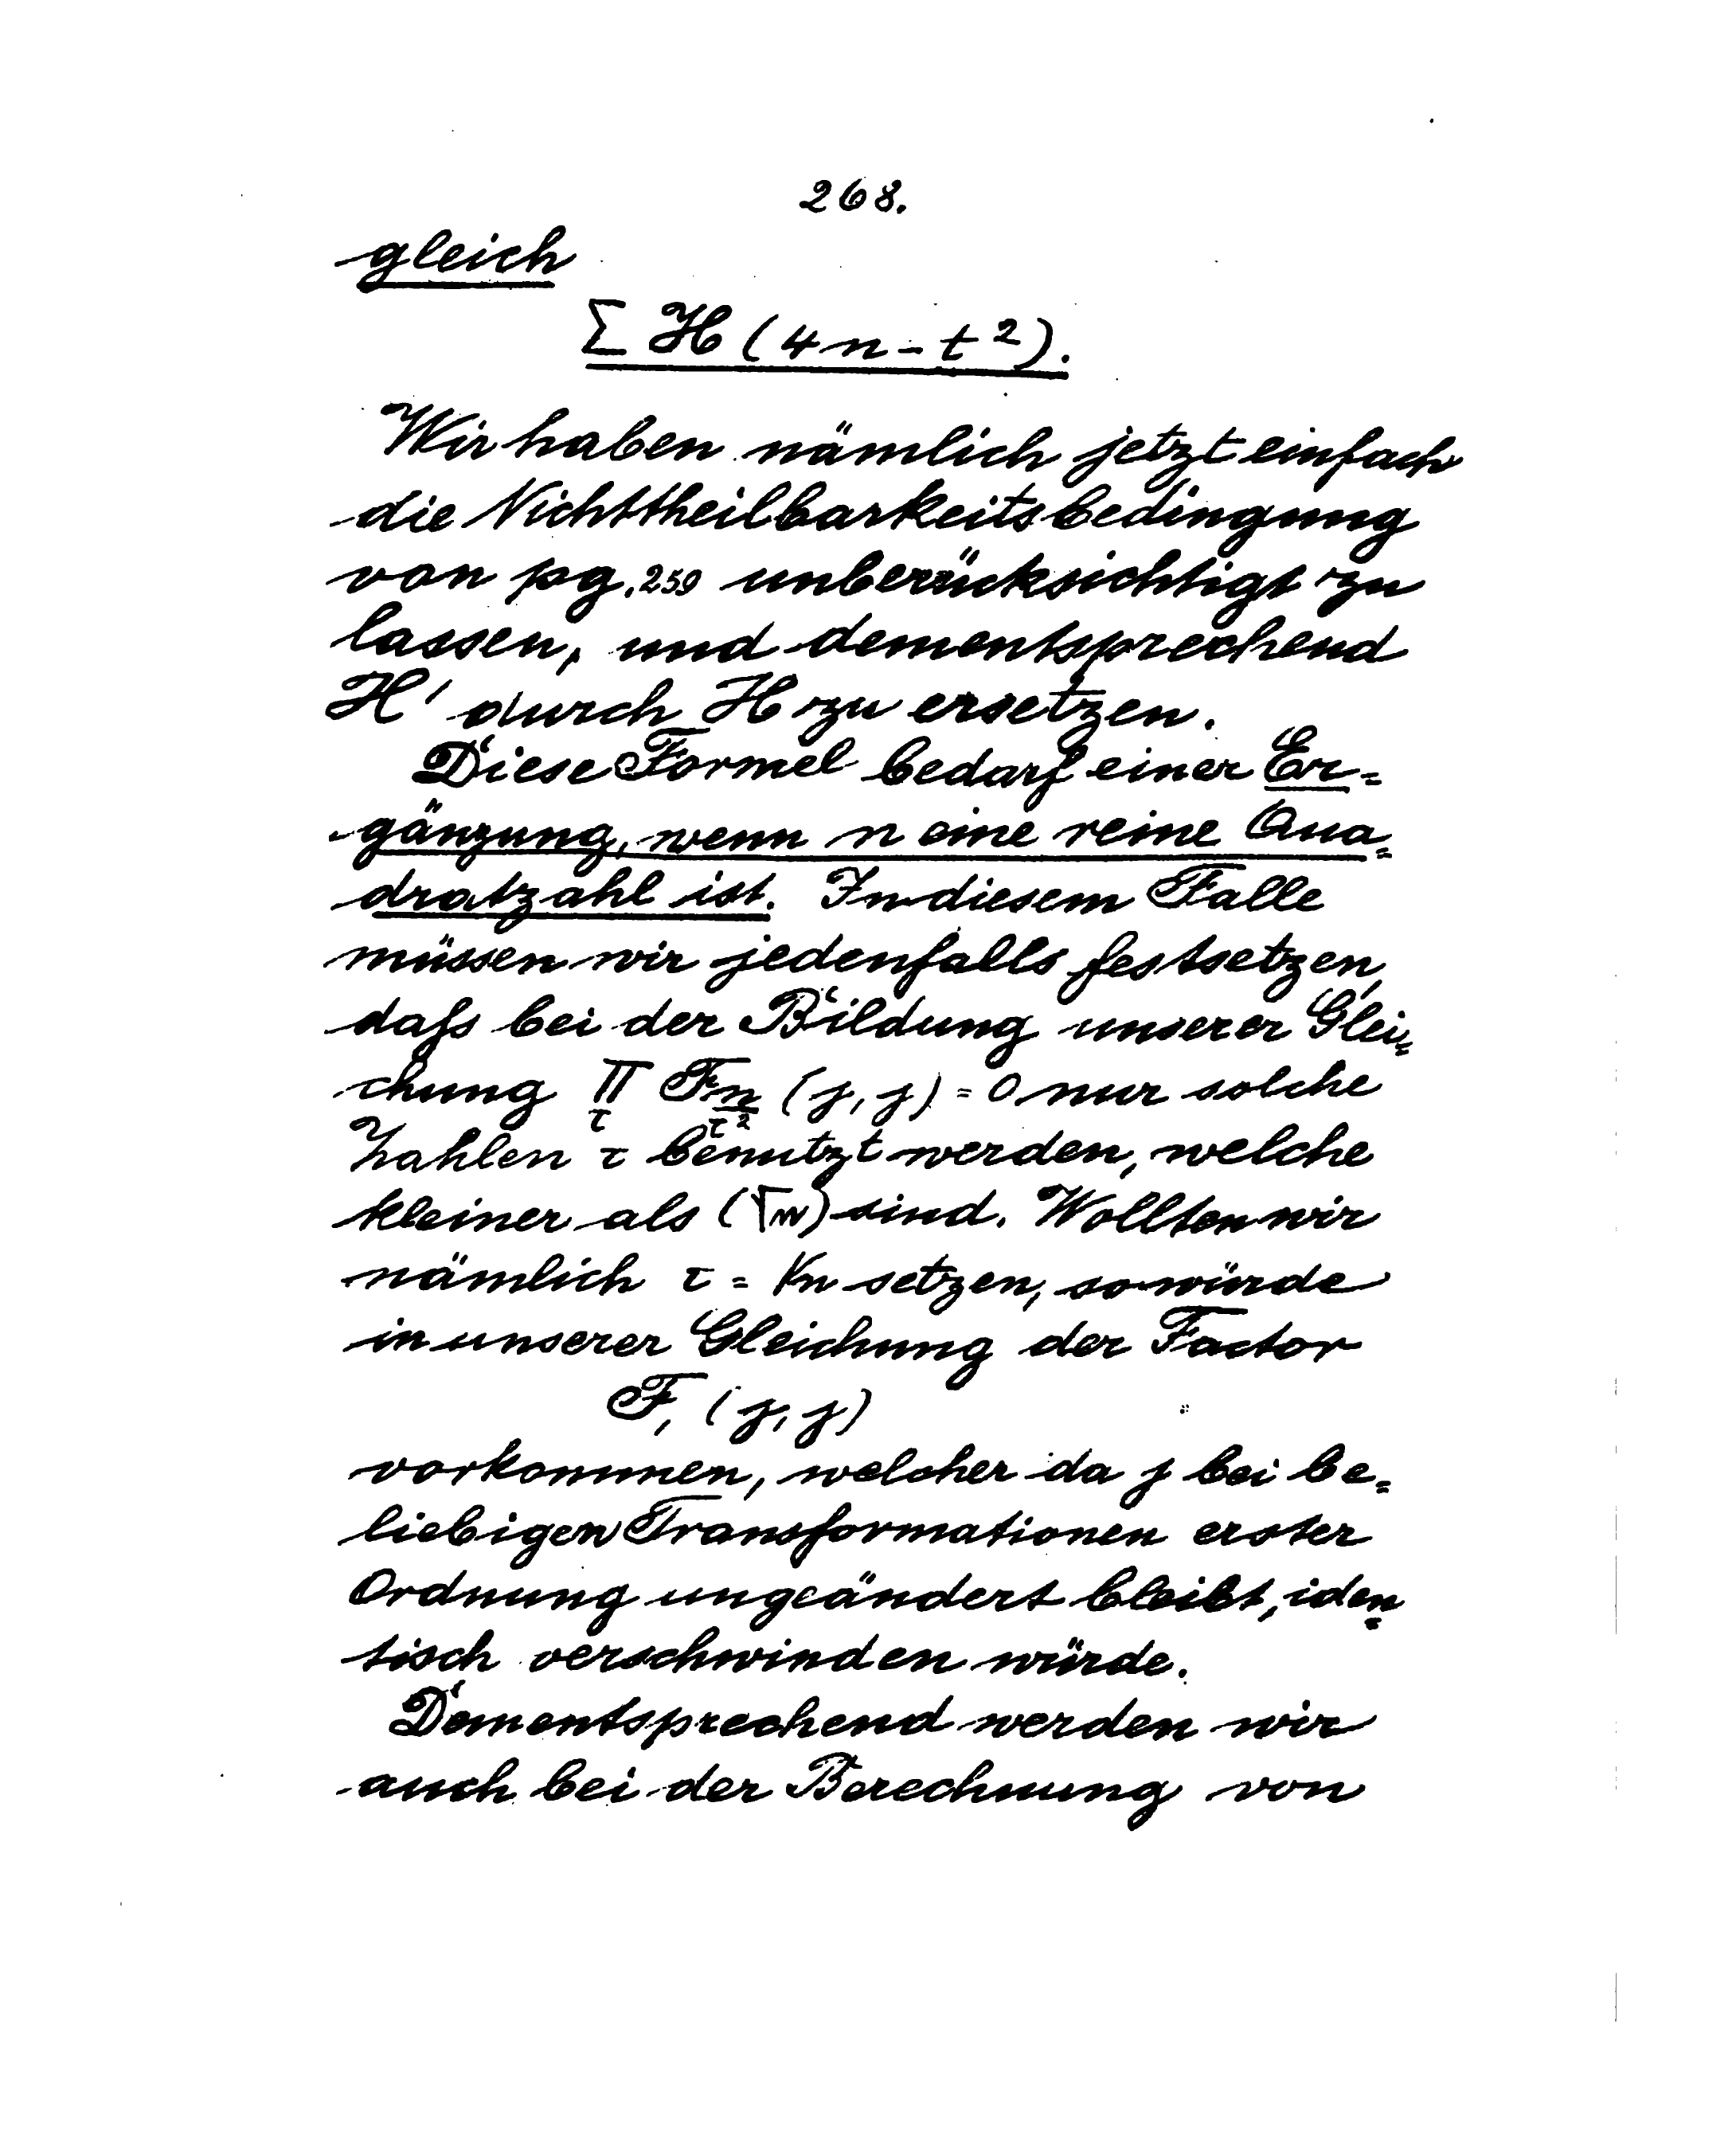 268.
gleich
Σ H (4n - t²).
Wir haben nämlich jetzt einfach
die Nichttheilbarkeitsbedingung
von pg. 259 unberücksichtigt zu
lassen, und dementsprechend
H' durch H zu ersetzen.
Diese Formel bedarf einer Er=
gänzung, wenn n eine reine Qua=
dratzahl ist. In diesem Falle
müssen wir jedenfalls festsetzen,
daß bei der Bildung unserer Glei=
chung Π_τ F_{n/τ²} (j, j) = 0 nur solche
Zahlen τ benutzt werden, welche
kleiner als (√n) sind. Wollten wir
nämlich τ = √n setzen, so würde
in unserer Gleichung der Factor
F₁ (j, j)
vorkommen, welcher da j bei be=
liebigen Transformationen erster
Ordnung ungeändert bleibt, iden=
tisch verschwinden würde.
Dementsprechend werden wir
auch bei der Berechnung von